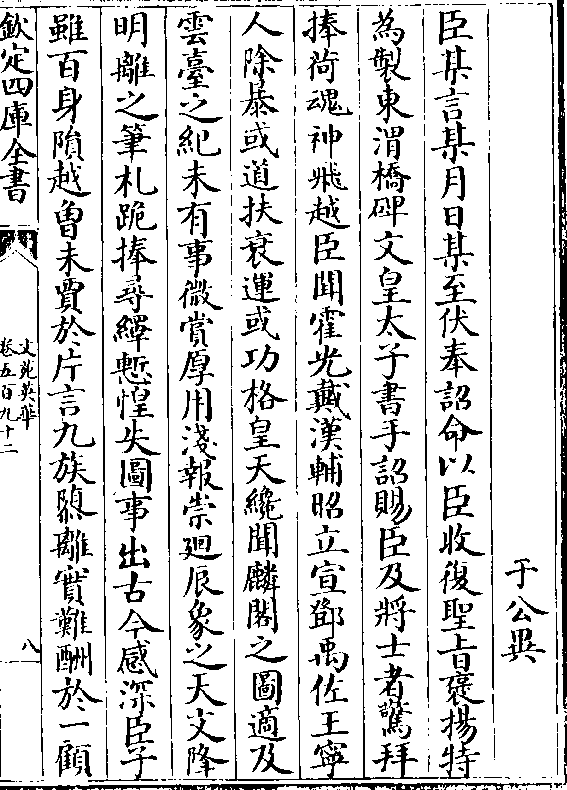 于公異
臣某言某月日某至伏奉詔命以臣收復聖旨褒揚特
為製東渭橋碑文皇太子書手詔賜臣及將士者驚拜
捧荷魂神飛越臣聞霍光戴漢輔昭立宣鄧禹佐王寧
人除暴或道扶衰運或功格皇天纔聞麟閣之圖適及
雲臺之紀未有事微賞厚用淺報崇廻辰象之天文降
明離之筆札跪捧尋繹慙惶失圖事出古今感深臣子
雖百身隕越曾未賈於片言九族隳離實難酬於一顧
欽定四庫全書
文苑英華
卷五百九十二
八